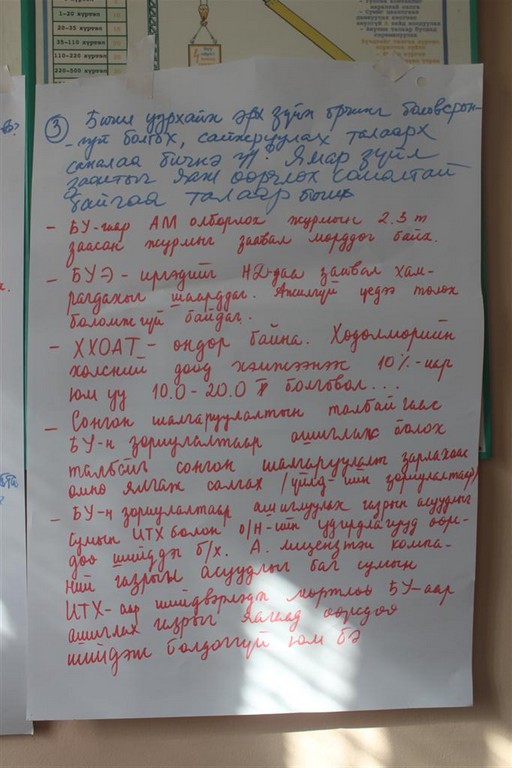 1-20 хүртэл
20-35 хүртэл
35-110 хүртэл
110-220 хүртэл
220-500 хүртэл
3 Бичил уурхайн эрх зүйн орчинг боловсрон-
-гүй болгох, сайжруулах талаарх
саналаа бичнэ үү. Ямар зүйл
заалтыг яаж өөрчлөх саналтай
байгаа талаар бичих
- БУ-аар АМ олборлох журмын 2.3 т
заасан журмыг заавал мөрддөг байх.
- БУЭ- иргэдийг НД-даа заавал хам-
рагдахыг шаарддаг. Ажилгүй үедээ төлөх
боломжгүй байдаг.
- ХХОАТ- өндөр байна. Хөдөлмөрийн
хөлсний доод хэмжээнээс 10%-иар
юм уу 10.0-20.0 ₮ болговол...
- Сонгон шалгаруулалтын талбайгаас
БУ-н зориулалтаар ашиглаж болох
талбайг сонгон шалгаруулалт зарлахаас
өмнө ялгаж салгах /үйлд-ийн зориулалтаар/
- БУ-н зориулалтаар ашиглуулах газрын асуудлыг
сумын ИТХ болон о/н-ийн удирдлагууд өөр-
дөө шийддэг б/х. А. лицензтэй компа-
ний газрын асуудлыг баг сумын
ИТХ-аар шийдвэрлэдэг мөртлөө БУ-аар
ашиглах газрыг яагаад өөрсдөө
шийдэж болдоггүй юм бэ